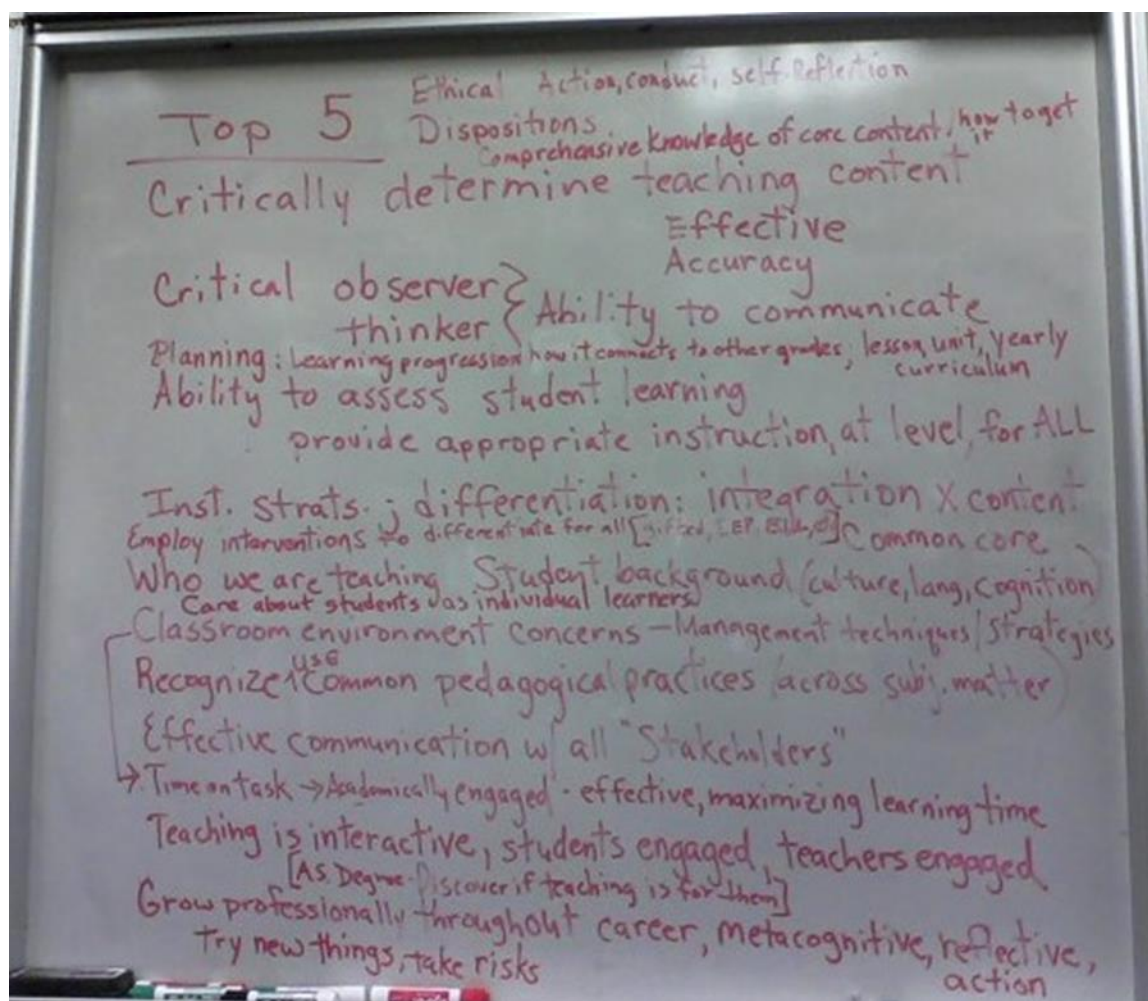 Ethical Action, conduct, self-Reflection
Top 5
Dispositions
Comprehensive knowledge of core content, how to get it
Critically determine teaching content
Effective
Accuracy
Critical observer
thinker
Ability to communicate
Planning: Learning progression how it connects to other grades, lesson, unit, yearly
curriculum
Ability to assess student learning
provide appropriate instruction, at level, for ALL
Inst. strats. ; differentiation: integration X content
Employ interventions to differentiate for all [gifted, LEP, ELL,
Common core
Who we are teaching Student background (culture, lang, cognition)
Care about students as individual learners
Classroom environment concerns - Management techniques/strategies
use
Recognize ^ common pedagogical practices (across subj. matter)
Effective communication w/ all "Stakeholders"
→ Time on task → Academically engaged - effective, maximizing learning time
Teaching is interactive, students engaged, teachers engaged
[AS Degree - Discover if teaching is for them]
Grow professionally throughout career, metacognitive, reflective,
action
Try new things, take risks